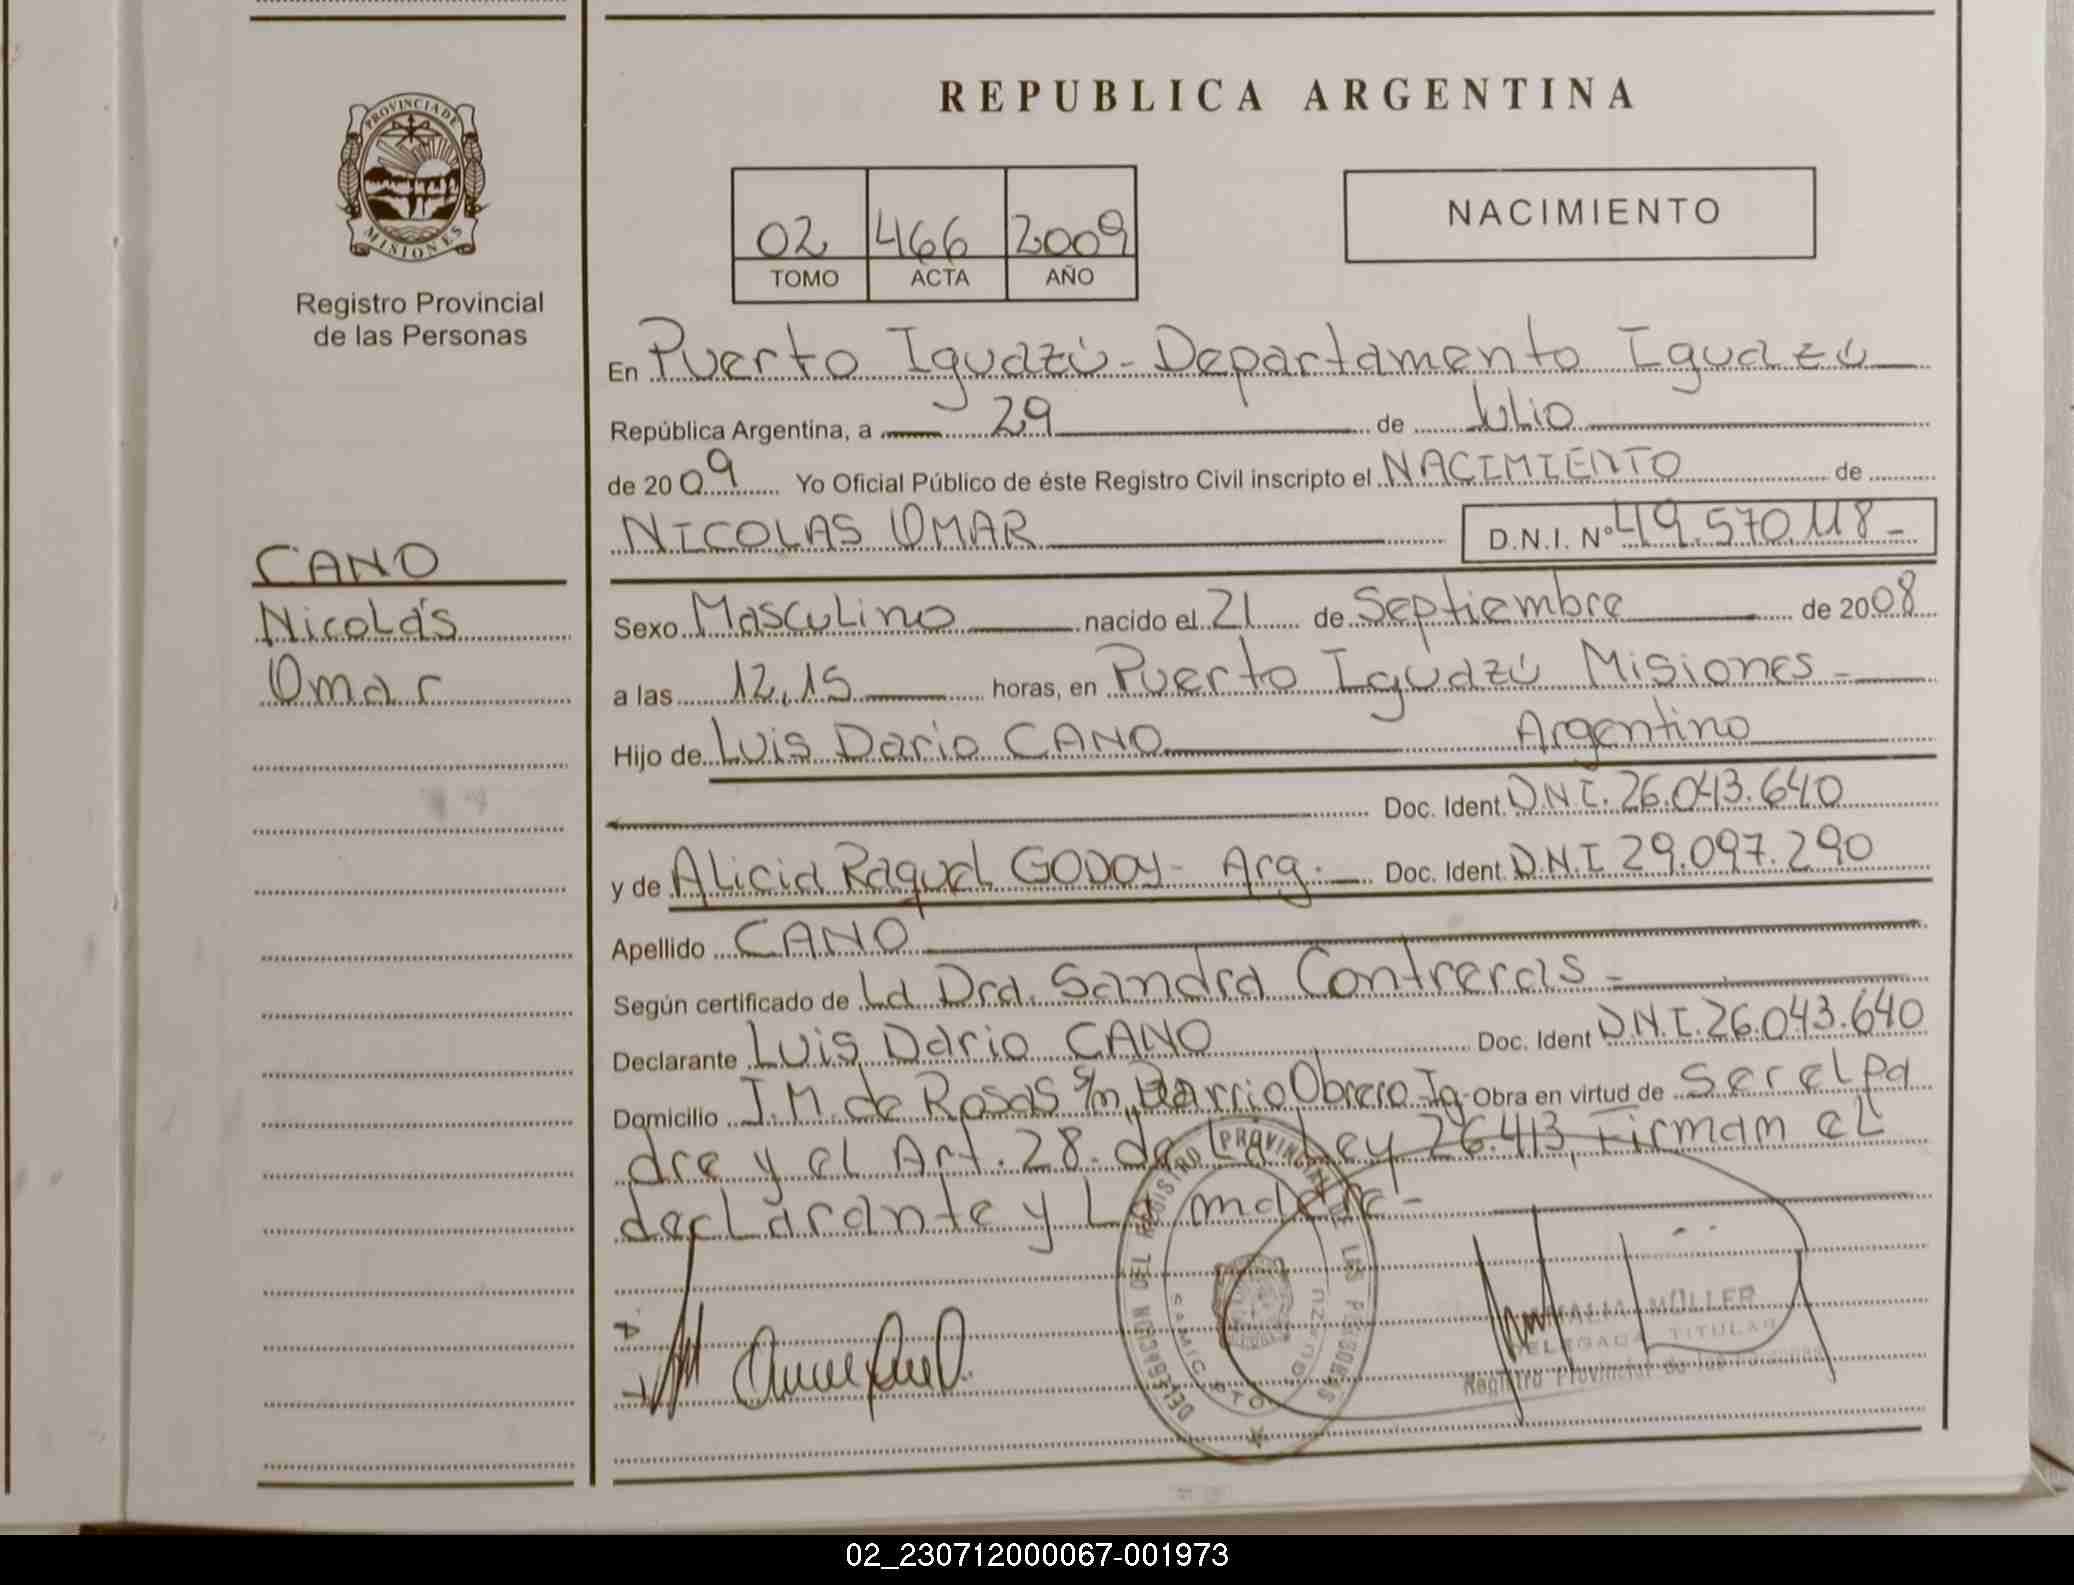 REPUBLICA ARGENTINA
PROVINCIA DE
MISIONES
Registro Provincial
de las Personas
02 466 2009
TOMO ACTA AÑO
NACIMIENTO
En Puerto Iguazú - Departamento Iguazú
República Argentina, a 29 de Julio
de 2009 Yo Oficial Público de éste Registro Civil inscripto el NACIMIENTO de
NICOLAS OMAR D.N.I. Nº 49.570.118-
CANO
Nicolás
Omar
Sexo Masculino nacido el 21 de Septiembre de 2008
a las 12,15 horas, en Puerto Iguazú Misiones -
Hijo de Luis Dario CANO Argentino
Doc. Ident. D.N.I. 26.043.640
y de Alicia Raquel GODOY - Arg. Doc. Ident. D.N.I 29.097.290
Apellido CANO
Según certificado de La Dra. Sandra Contreras -
Declarante Luis Dario CANO Doc. Ident D.N.I. 26.043.640
Domicilio J.M. de Rosas s/n, Barrio Obrero Ig. Obra en virtud de ser el pa
dre y el Art. 28. de La Ley 26.413, Firman el
declarante y La madre -
DELEGACION DEL REGISTRO PROVINCIAL DE LAS PERSONAS
MÜLLER
DELEGADA TITULAR
Registro Provincial de las Personas
02_230712000067-001973